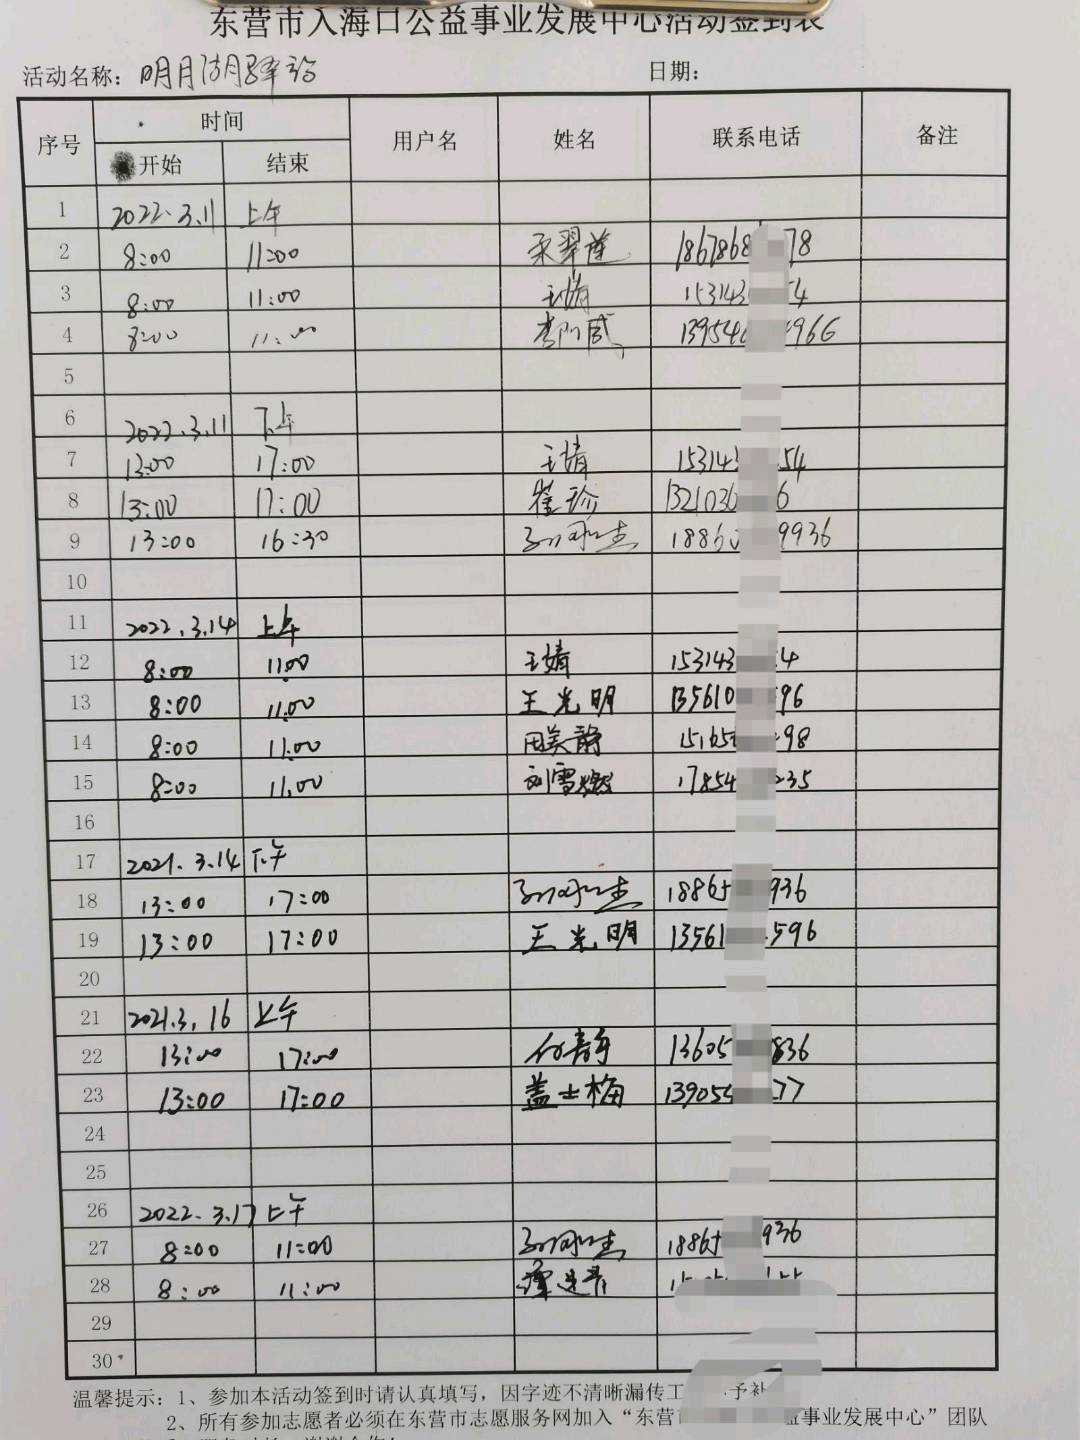 东营市入海口公益事业发展中心活动签到表
活动名称：明月湖驿站 日期：
序号 时间 用户名 姓名 联系电话 备注
开始 结束
1 2022.3.11 上午
2 8:00 11:00 186786 78
3 8:00 11:00 王婧 153143 4
4 8:00 11:00 13954 966
5
6 2022.3.11 下午
7 13:00 17:00 王婧 15314 54
8 13:00 17:00 崔珍 132103 6
9 13:00 16:30 1886 9936
10
11 2022.3.14 上午
12 8:00 11:00 王婧 153143 4
13 8:00 11:00 王光明 135610 96
14 8:00 11:00 田美静 15165 98
15 8:00 11:00 刘雪燃 17854 35
16
17 2021.3.14 下午
18 13:00 17:00 18865 936
19 13:00 17:00 王光明 13561 596
20
21 2021.3.16 上午
22 13:00 17:00 付青宁 13605 836
23 13:00 17:00 盖士梅 13905 77
24
25
26 2022.3.17 上午
27 8:00 11:00 18865 936
28 8:00 11:00
29
30
温馨提示：1、参加本活动签到时请认真填写，因字迹不清晰漏传工 予补
2、所有参加志愿者必须在东营市志愿服务网加入“东营 益事业发展中心”团队